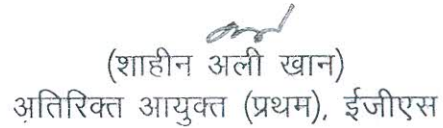 (शाहीन अली खान)
अतिरिक्त आयुक्त (प्रथम), ईजीएस